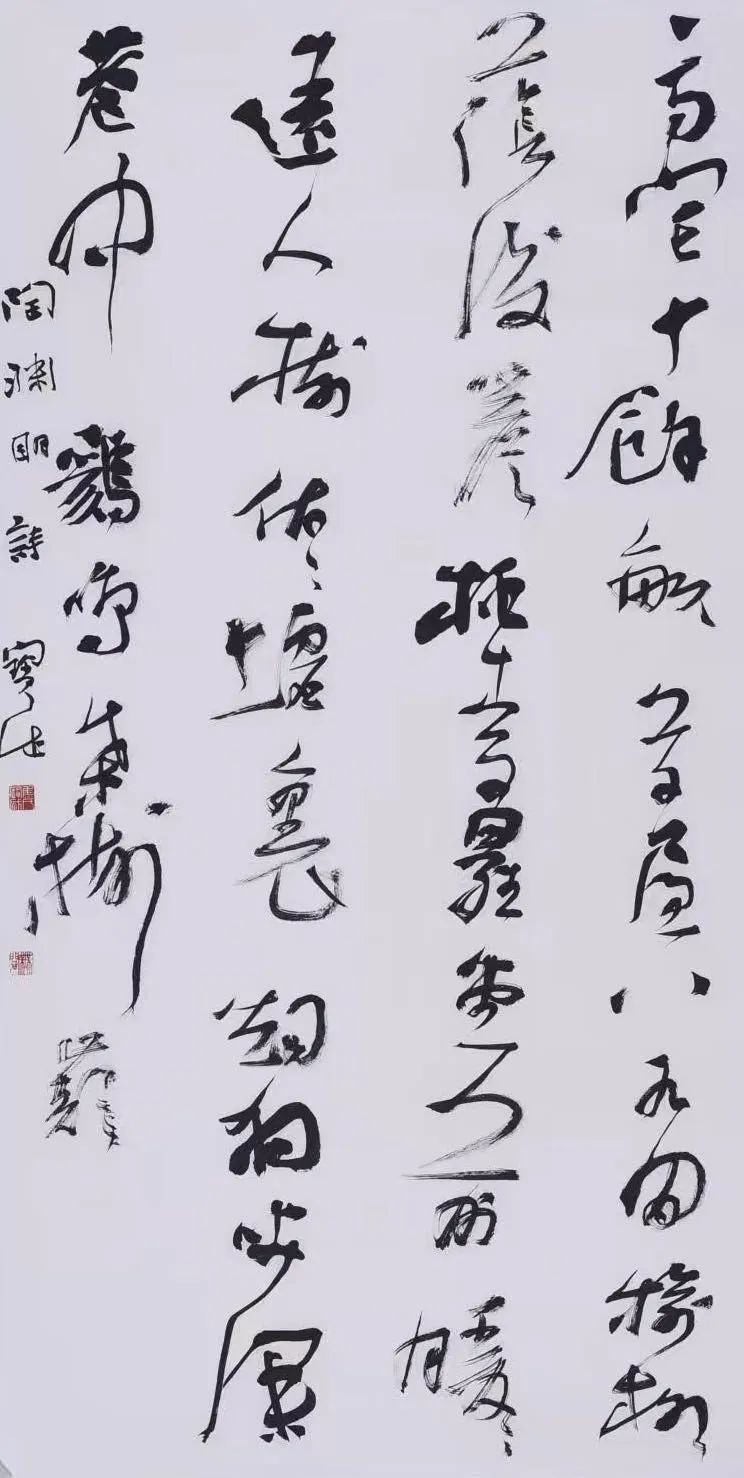 方宅十餘畝草屋八九間榆柳
蔭後簷桃李羅堂前曖々
遠人村依々墟里煙狗吠深
巷中鷄鳴桑樹顛
陶淵明詩 寶